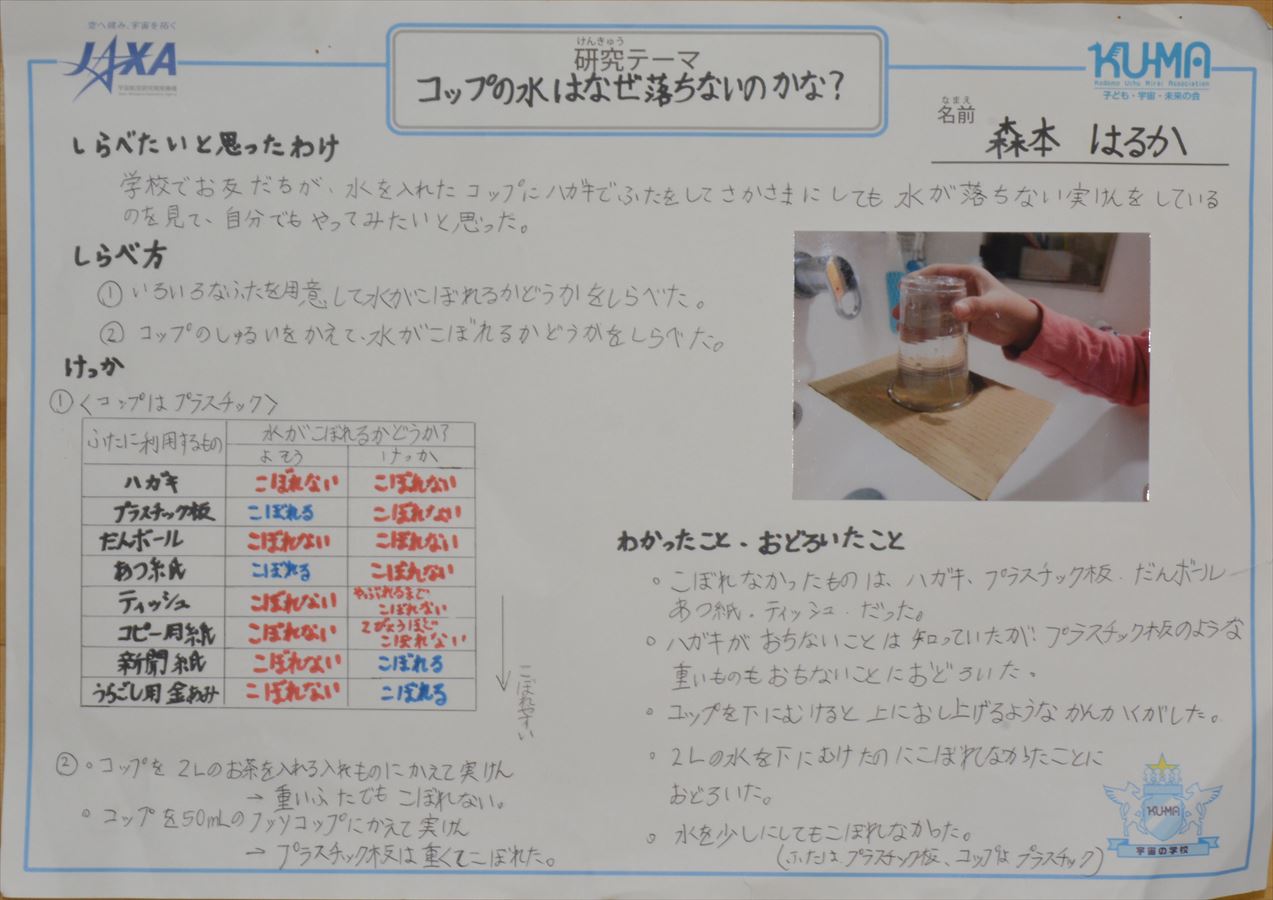 空へ挑み、宇宙を拓く
JAXA
けんきゅう
研究テーマ
コップの水はなぜ落ちないのかな？
KU-MA
Kodomo Uchu Mirai Association
子ども・宇宙・未来の会
なまえ
名前
森本 はるか
しらべたいと思ったわけ
学校でお友だちが、水を入れたコップにハガキでふたをしてさかさまにしても水が落ちない実けんをしている
のを見て、自分でもやってみたいと思った。
しらべ方
① いろいろなふたを用意して水がこぼれるかどうかをしらべた。
② コップのしゅるいをかえて、水がこぼれるかどうかをしらべた。
けっか
①〈コップはプラスチック〉
ふたに利用するもの 水がこぼれるかどうか？
よそう けっか
ハガキ こぼれない こぼれない
プラスチック板 こぼれる こぼれない
だんボール こぼれない こぼれない
あつ紙 こぼれる こぼれない
ティッシュ こぼれない やぶれるまでこぼれない
コピー用紙 こぼれない 2びょうほどこぼれない
新聞紙 こぼれない こぼれる
うらごし用金あみ こぼれない こぼれる
こぼれやすい
②。コップを2Lのお茶を入れる入れものにかえて実けん
→ 重いふたでもこぼれない。
。コップを50mLのコップにかえて実けん
→ プラスチック板は重くてこぼれた。
わかったこと・おどろいたこと
。こぼれなかったものは、ハガキ、プラスチック板・だんボール
あつ紙・ティッシュ・だった。
。ハガキがおちないことは知っていたが、プラスチック板のような
重いものもおちないことにおどろいた。
。コップを下にむけると上におし上げるようなかんかくがした。
。2Lの水を下にむけたのにこぼれなかったことに
おどろいた。
。水を少しにしてもこぼれなかった。
（ふたはプラスチック板、コップはプラスチック）
KU-MA
宇宙の学校